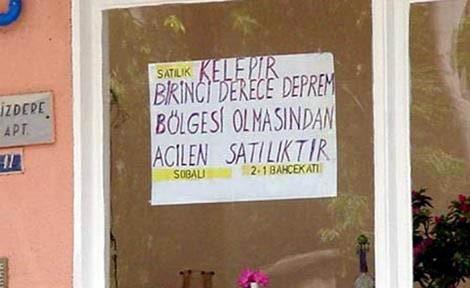 SATILIK KELEPİR
BİRİNCİ DERECE DEPREM
BÖLGESİ OLMASINDAN
ACİLEN SATILIKTIR
SOBALI 2-1 BAHCEKATI
İZDERE
APT.